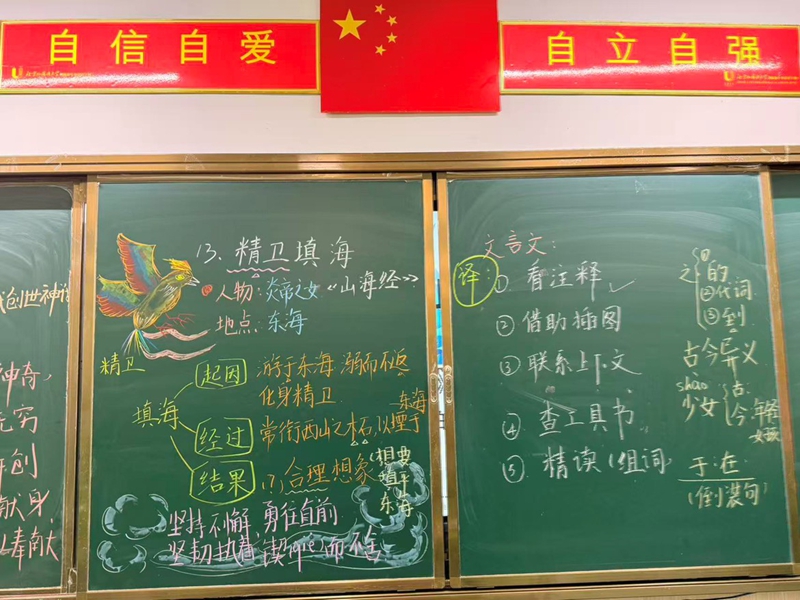 自信自爱
自立自强
创世神话
神奇,
无穷
开创
献身,
奉献
13、精卫填海
人物:炎帝之女《山海经》
地点:东海
精卫
填海
起因
游于东海,溺而不返
化身精卫
经过
常衔西山之木石,以堙于
东海
结果
(7)合理想象
(想要
填平
东海
坚持不懈,勇往直前
坚韧执着 锲qiè而不舍
文言文:
译:
①看注释
②借助插图
③联系上下文
④查工具书
⑤精读(组词
之
①的
②代词
③到
古今异义
shào
少女
古:
今:年轻
女孩
于:在
(倒装句)